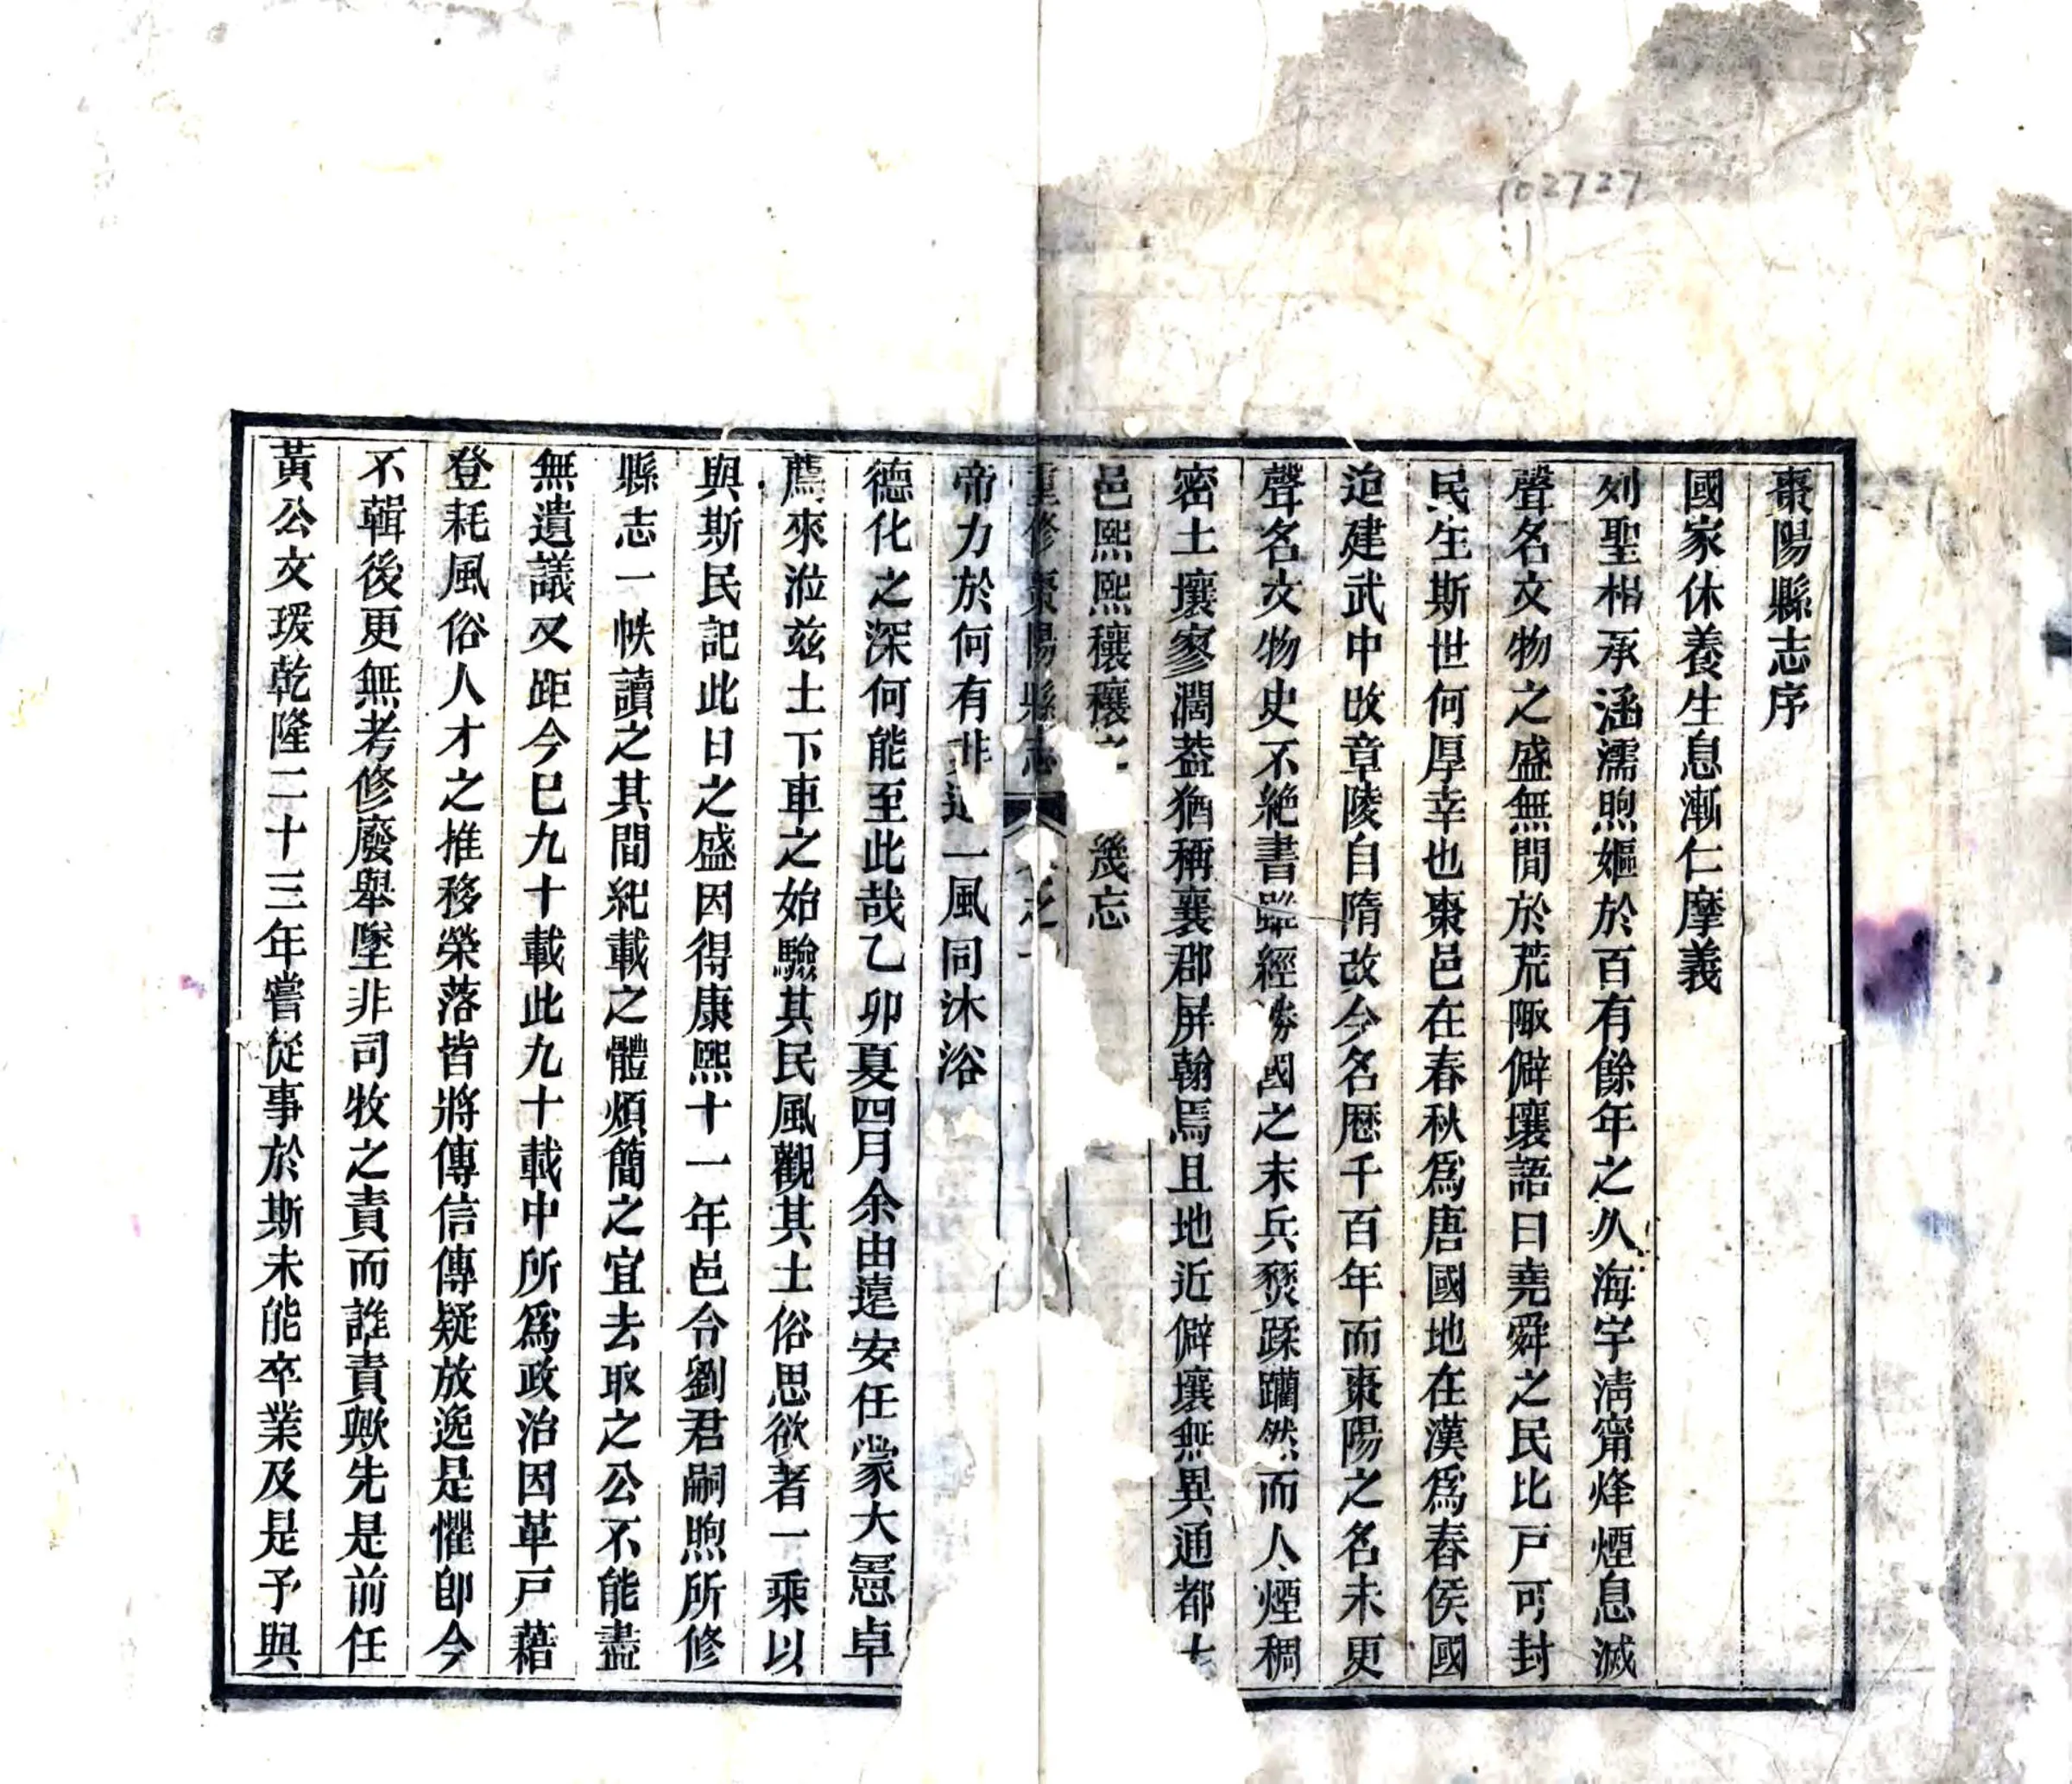 102727
棗陽縣志序
國家休養生息漸仁摩義
列聖相承涵濡煦嫗於百有餘年之久海宇清甯烽煙息滅
聲名文物之盛無閒於荒陬僻壤語曰堯舜之民比戸可封
民生斯世何厚幸也棗邑在春秋爲唐國地在漢爲舂侯國
迨建武中改章陵自隋改今名歷千百年而棗陽之名未更
聲名文物史不絶書雖經勝國之末兵燹蹂躪然而人煙稠
密土壤寥濶葢猶稱襄郡屏翰焉且地近僻壤無異通都
邑熙熙穰穰之幾忘
重修棗陽縣志 之一
帝力於何有非一風同沐浴
德化之深何能至此哉乙卯夏四月余由遠安任蒙大憲卓
薦來涖兹土下車之始驗其民風觀其土俗思欲者一乘以
與斯民記此日之盛因得康熙十一年邑令劉君嗣煦所修
縣志一帙讀之其間紀載之體煩簡之宜去取之公不能盡
無遺議又距今巳九十載此九十載中所爲政治因革戸藉
登耗風俗人才之推移榮落皆將傳信傳疑放逸是懼卽今
不輯後更無考修廢舉墜非司牧之責而誰責歟先是前任
黃公文瑗乾隆二十三年嘗從事於斯未能卒業及是予與